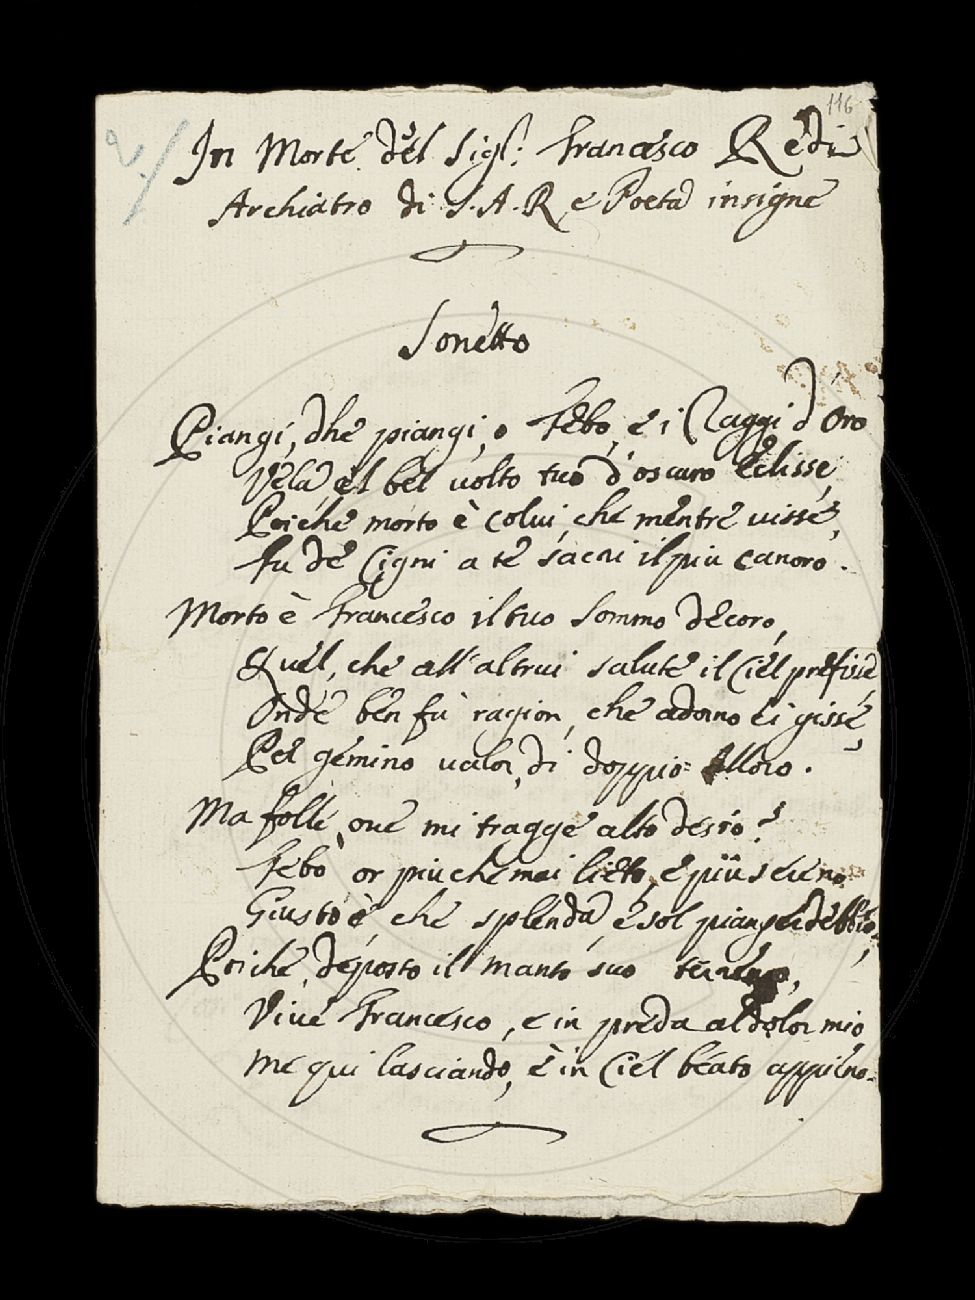 116
2/
In Morte del Sig.r Francesco Redi
Archiatro di S.A.R. e Poeta insigne
Sonetto
Piangi, dhe piangi, o Febo, e i Raggi d'Oro
Vela, el bel volto tuo d'oscuro Eclisse,
Poiche morto è colui, che mentre visse,
Fu de Cigni a te sacri il piu canoro.
Morto è Francesco il tuo sommo decoro,
Quel, che all'altrui salute il Ciel prefisse,
Onde ben fù ragion, che adorno ei gisse,
Pel gemino valor, di doppio Alloro.
Ma folle, ove mi tragge alto desio?
Febo or piu che mai lieto, e più sereno
Giusto è, che splenda, e sol pianger debb'io,
Poiche, deposto il manto suo terreno,
Vive Francesco, e in preda al dolor mio
Me qui lasciando, è in Ciel beato appieno.